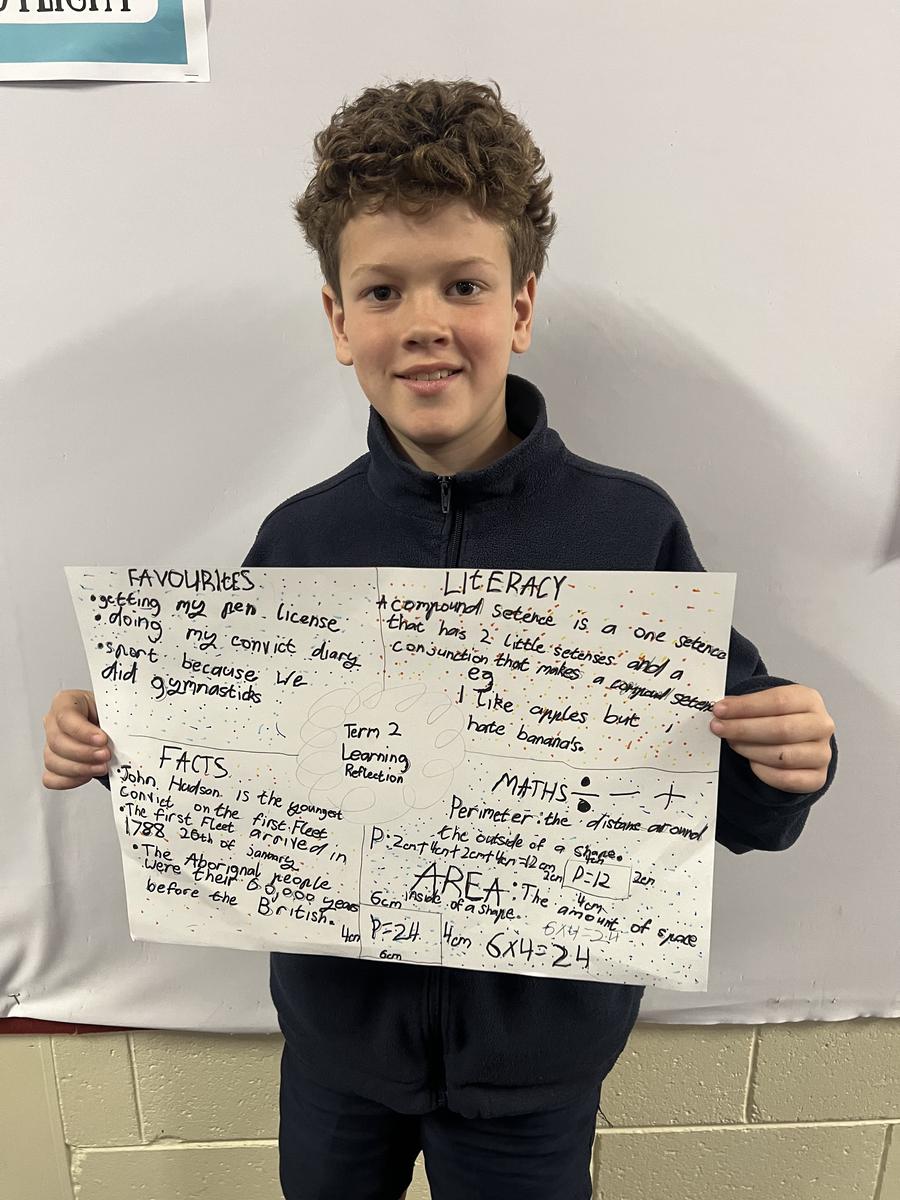 FAVOURITES
•getting my pen license
•doing my convict diary
•sport because we
did gymnasticks
LITERACY
A compound setence is a one setence
that has 2 little setenses and a
conjunction that makes a compound setence
eg
I like apples but i
hate banana's.
Term 2
Learning
Reflection
FACTS
•John Hudson is the youngest
convict on the first Fleet
•The first Fleet arrived in
1788 26th of january
•The Aborignal people
were their 60,000 years
before the British.
MATHS ÷ - +
Perimeter: the distane around
the outside of a shape.
P=2cm+4cm+2cm+4cm=12cm
4cm
2cm P=12 2cm
4cm
AREA: The amount of space
inside of a shape.
6x4=24
6cm
4cm P=24 4cm
6cm
6x4=24